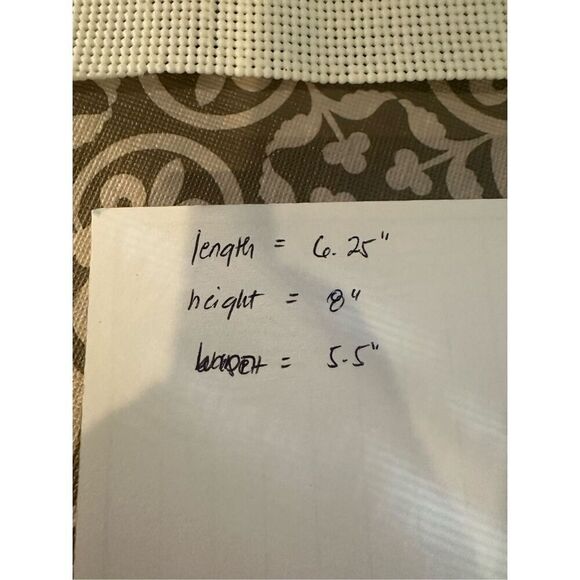 length = 6.25"
height = 8"
= 5.5"